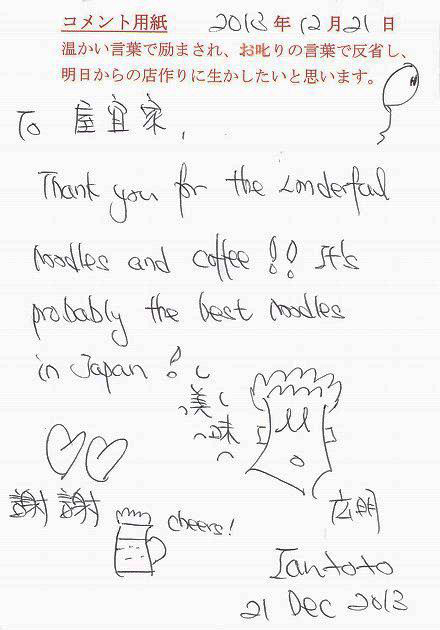 コメント用紙 2013年12月21日
温かい言葉で励まされ、お叱りの言葉で反省し、
明日からの店作りに生かしたいと思います。
To 屋宜家,
Thank you for the wonderful
noodles and coffee!! It's
probably the best noodles
in Japan!
美味
謝謝
cheers!
広明
Iantoto
21 Dec 2013